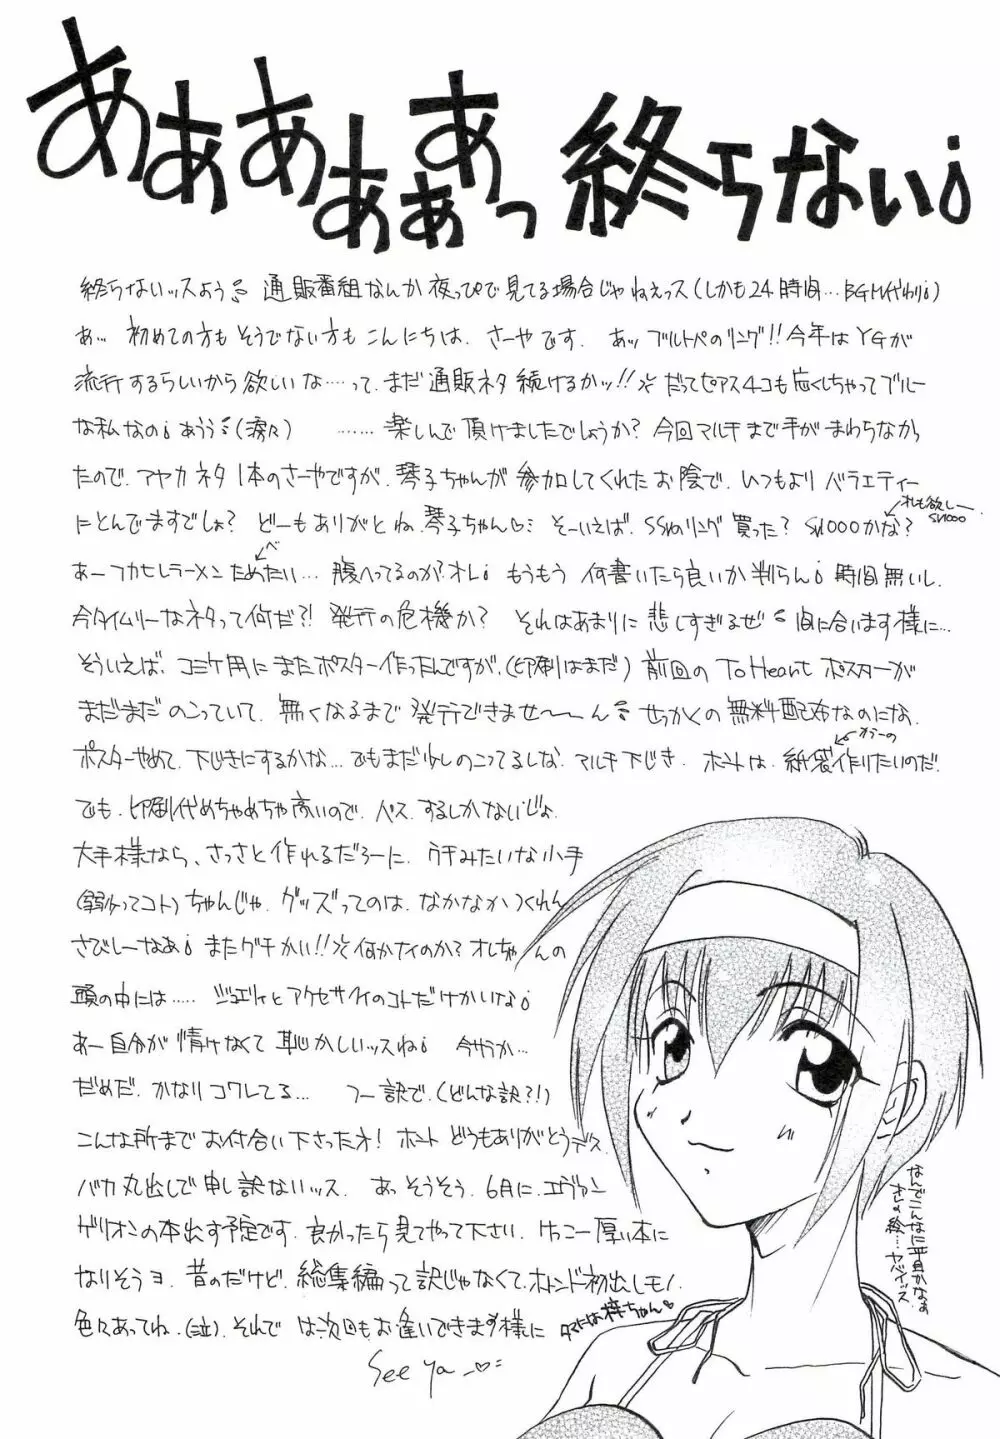 あああああぁあっ 終らない¡
終らないッスよう 通販番組なんか夜っぴで見てる場合じゃねえっス(しかも24時間…BGM代わり¡)
あ… 初めての方もそうでない方もこんにちは、さーやです。 あッブルトペのリング!!今年はYGが
流行するらしいから欲しいな……って、まだ通販ネタ続けるかッ!! だってピアス4コも亡くしちゃってブルー
な私なの¡ あうう(涙々) ……楽しんで頂けましたでしょうか?今回マルチまで手がまわらなかっ
たので、アヤカネタ1本のさーやですが、琴子ちゃんが参加してくれたお陰で、いつもよりバラエティー
にとんでますでしょ? どーもありがとね、琴子ちゃん♡ そーいえば、SSNのリング買った? SV1000かな?
オレも欲しー SV1000
あーフカヒレラーメンためたい… 腹へってるのか?オレ¡ もうもう何書いたら良いか判らん¡時間無いし、
べ
今タイムリーなネタって何だ?! 発行の危機か? それはあまりに悲しすぎるぜ 間に合います様に…
そういえば、コミケ用にまたポスター作ったんですが、(印刷はまだ)前回のTo Heartポスターが
まだまだのこっていて、無くなるまで発行できませ〜〜ん せっかくの無料配布なのにな、
ポスターやめて、下じきにするかな…でもまだ少しのこってるしな、マルチ下じき、ホントは、紙袋作りたいのだ。
カラーの
でも、印刷代めちゃめちゃ高いので、パス、するしかないじょ
大手様なら、さっさと作れるだろーに、ウチみたいな小手
(弱小ってコト)ちゃんじゃ、グッズってのは、なかなかつくれん
さびしーなあ¡またグチかい!! 何かナイのか?オレちゃんの
頭の中には…… ジュエリィとアクセサリィのコトだけかいな¡
あー自分が情けなくて恥かしいッスね¡ 今サラか…
だめだ、かなりコワレてる… フー訳で、(どんな訳?!)
こんな所までお付合い下さった方! ホントどうもありがとうデス、
バカ丸出しで申し訳ないッス、 あっそうそう、6月に、エヴァン
ゲリオンの本出す予定です、良かったら見てやって下さい、けっこー厚い本に
なりそうョ、昔のだけど、総集編って訳じゃなくて、ホトンド初出しモノ、
色々あってね、(泣)、それでは、次回もお逢いできます様に
タマには梓ちゃん
See ya
なんでこんなに平目かなぁ
さーの絵…ヤバイッス